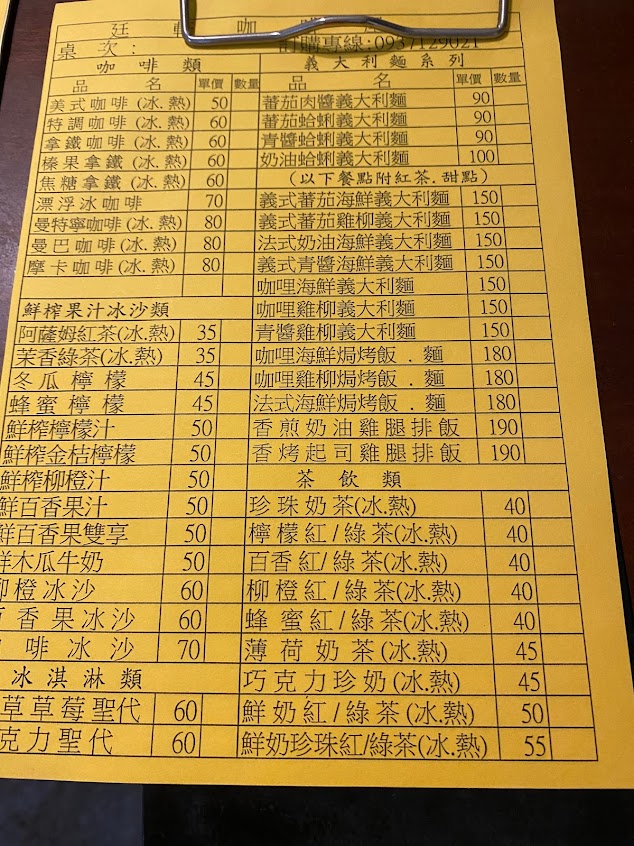 廷
咖
桌次:
訂購專線:0937129021
咖啡類
品名 單價 數量
美式咖啡 (冰.熱) 50
特調咖啡 (冰.熱) 60
拿鐵咖啡 (冰.熱) 60
榛果拿鐵 (冰.熱) 60
焦糖拿鐵 (冰.熱) 60
漂浮冰咖啡 70
曼特寧咖啡(冰.熱) 80
曼巴咖啡 (冰.熱) 80
摩卡咖啡 (冰.熱) 80
鮮榨果汁冰沙類
阿薩姆紅茶(冰.熱) 35
茉香綠茶(冰.熱) 35
冬瓜檸檬 45
蜂蜜檸檬 45
鮮榨檸檬汁 50
鮮榨金桔檸檬 50
鮮榨柳橙汁 50
鮮百香果汁 50
鮮百香果雙享 50
鮮木瓜牛奶 50
柳橙冰沙 60
百香果冰沙 60
啡冰沙 70
冰淇淋類
草草莓聖代 60
克力聖代 60
義大利麵系列
品名 單價 數量
蕃茄肉醬義大利麵 90
蕃茄蛤蜊義大利麵 90
青醬蛤蜊義大利麵 90
奶油蛤蜊義大利麵 100
(以下餐點附紅茶.甜點)
義式蕃茄海鮮義大利麵 150
義式蕃茄雞柳義大利麵 150
法式奶油海鮮義大利麵 150
義式青醬海鮮義大利麵 150
咖哩海鮮義大利麵 150
咖哩雞柳義大利麵 150
青醬雞柳義大利麵 150
咖哩海鮮焗烤飯．麵 180
咖哩雞柳焗烤飯．麵 180
法式海鮮焗烤飯．麵 180
香煎奶油雞腿排飯 190
香烤起司雞腿排飯 190
茶飲類
珍珠奶茶(冰.熱) 40
檸檬紅/綠茶(冰.熱) 40
百香紅/綠茶(冰.熱) 40
柳橙紅/綠茶(冰.熱) 40
蜂蜜紅/綠茶(冰.熱) 40
薄荷奶茶(冰.熱) 45
巧克力珍奶(冰.熱) 45
鮮奶紅/綠茶(冰.熱) 50
鮮奶珍珠紅/綠茶(冰.熱) 55